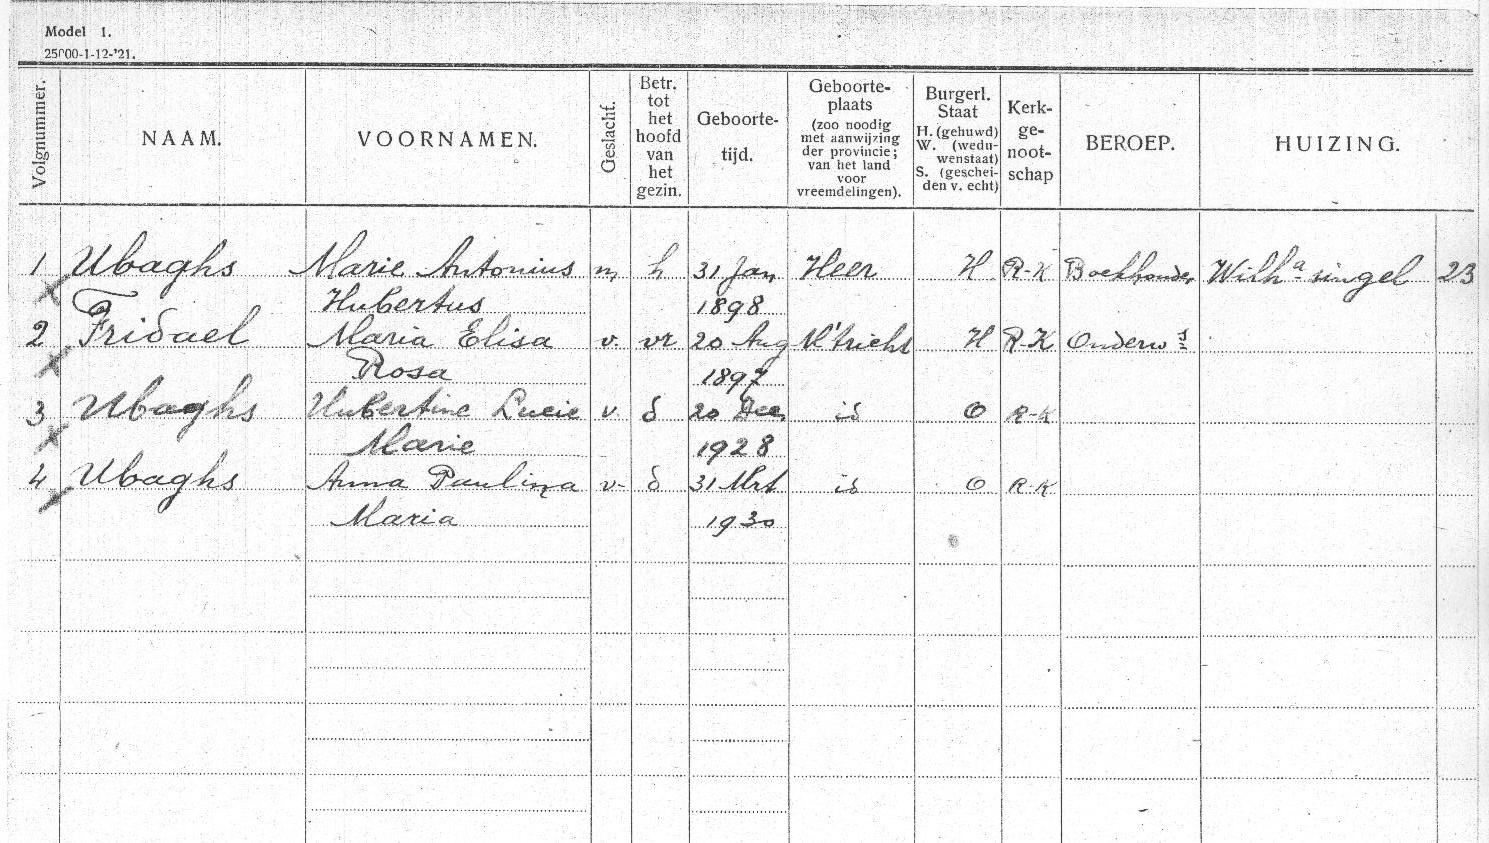 Model 1.
25000-1-12-'21.
Volgnummer.
NAAM.
VOORNAMEN.
Geslacht.
Betr.
tot
het
hoofd
van
het
gezin.
Geboorte-
tijd.
Geboorte-
plaats
(zoo noodig
met aanwijzing
der provincie;
van het land
voor
vreemdelingen).
Burgerl.
Staat
H. (gehuwd)
W. (wedu-
wenstaat)
S. (geschei-
den v. echt)
Kerk-
ge-
noot-
schap
BEROEP.
HUIZING.
1 Ubaghs Marie Antonius m h 31 Jan Heer H R-K Boekhouder Wilha singel 23
Hubertus 1898
2 Fridael Maria Elisa v. vr 20 Aug M'tricht H R-K Onderws
Rosa 1897
3 Ubaghs Hubertine Lucie v. d 20 Dec, id O R-K
Marie 1928
4 Ubaghs Anna Paulina v- d 31 Mrt id O R-K
Maria 1930